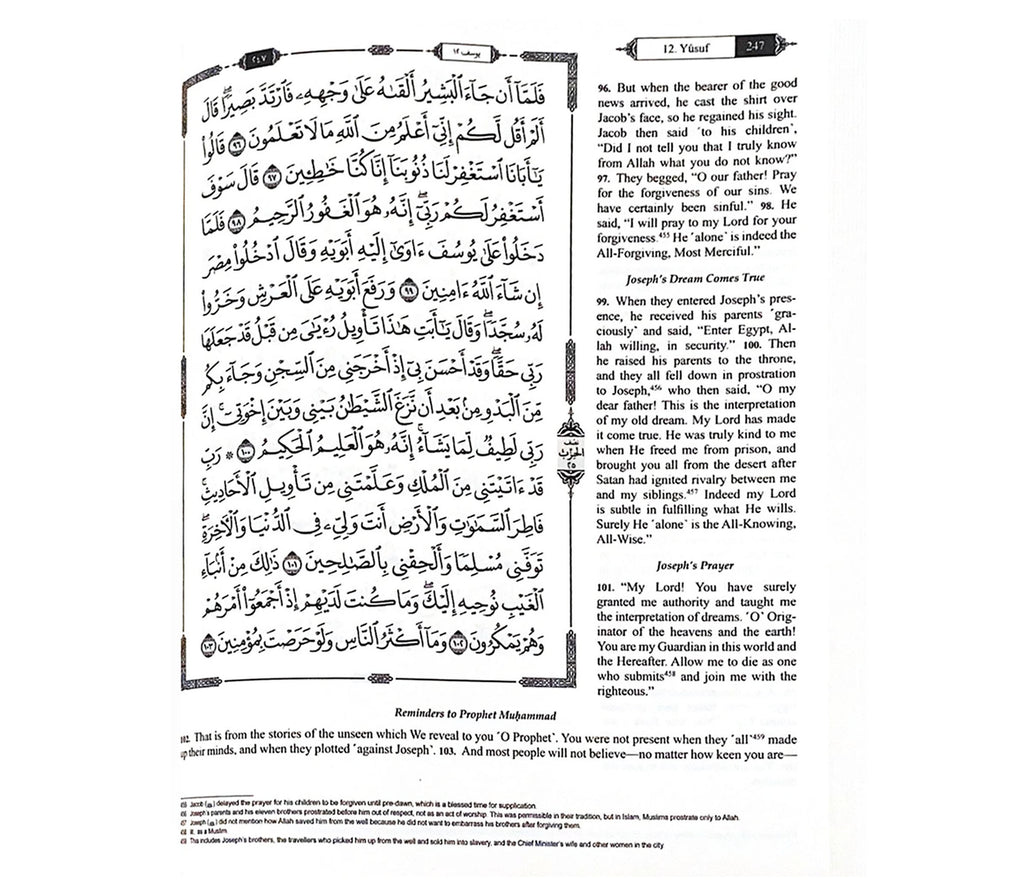 ٢٤٧
يوسف ١٢
12. Yûsuf
247
فَلَمَّآ أَن جَآءَ ٱلْبَشِيرُ أَلْقَىٰهُ عَلَىٰ وَجْهِهِۦ فَٱرْتَدَّ بَصِيرًا ۖ قَالَ
أَلَمْ أَقُل لَّكُمْ إِنِّىٓ أَعْلَمُ مِنَ ٱللَّهِ مَا لَا تَعْلَمُونَ ٩٦ قَالُوا۟
يَـٰٓأَبَانَا ٱسْتَغْفِرْ لَنَا ذُنُوبَنَآ إِنَّا كُنَّا خَـٰطِـِٔينَ ٩٧ قَالَ سَوْفَ
أَسْتَغْفِرُ لَكُمْ رَبِّىٓ ۖ إِنَّهُۥ هُوَ ٱلْغَفُورُ ٱلرَّحِيمُ ٩٨ فَلَمَّا
دَخَلُوا۟ عَلَىٰ يُوسُفَ ءَاوَىٰٓ إِلَيْهِ أَبَوَيْهِ وَقَالَ ٱدْخُلُوا۟ مِصْرَ
إِن شَآءَ ٱللَّهُ ءَامِنِينَ ٩٩ وَرَفَعَ أَبَوَيْهِ عَلَى ٱلْعَرْشِ وَخَرُّوا۟
لَهُۥ سُجَّدًا ۖ وَقَالَ يَـٰٓأَبَتِ هَـٰذَا تَأْوِيلُ رُءْيَـٰىَ مِن قَبْلُ قَدْ جَعَلَهَا
رَبِّى حَقًّا ۖ وَقَدْ أَحْسَنَ بِىٓ إِذْ أَخْرَجَنِى مِنَ ٱلسِّجْنِ وَجَآءَ بِكُم
مِّنَ ٱلْبَدْوِ مِنۢ بَعْدِ أَن نَّزَغَ ٱلشَّيْطَـٰنُ بَيْنِى وَبَيْنَ إِخْوَتِىٓ ۚ إِنَّ
رَبِّى لَطِيفٌ لِّمَا يَشَآءُ ۚ إِنَّهُۥ هُوَ ٱلْعَلِيمُ ٱلْحَكِيمُ ١٠٠ * رَبِّ
قَدْ ءَاتَيْتَنِى مِنَ ٱلْمُلْكِ وَعَلَّمْتَنِى مِن تَأْوِيلِ ٱلْأَحَادِيثِ ۚ
فَاطِرَ ٱلسَّمَـٰوَٰتِ وَٱلْأَرْضِ أَنتَ وَلِىِّۦ فِى ٱلدُّنْيَا وَٱلْـَٔاخِرَةِ ۖ
تَوَفَّنِى مُسْلِمًا وَأَلْحِقْنِى بِٱلصَّـٰلِحِينَ ١٠١ ذَٰلِكَ مِنْ أَنۢبَآءِ
ٱلْغَيْبِ نُوحِيهِ إِلَيْكَ ۖ وَمَا كُنتَ لَدَيْهِمْ إِذْ أَجْمَعُوٓا۟ أَمْرَهُمْ
وَهُمْ يَمْكُرُونَ ١٠٢ وَمَآ أَكْثَرُ ٱلنَّاسِ وَلَوْ حَرَصْتَ بِمُؤْمِنِينَ ١٠٣
نصف
الحزب
٢٥
96. But when the bearer of the good
news arrived, he cast the shirt over
Jacob’s face, so he regained his sight.
Jacob then said ˹to his children˺,
“Did I not tell you that I truly know
from Allah what you do not know?”
97. They begged, “O our father! Pray
for the forgiveness of our sins. We
have certainly been sinful.” 98. He
said, “I will pray to my Lord for your
forgiveness.⁴⁵⁵ He ˹alone˺ is indeed the
All-Forgiving, Most Merciful.”
Joseph’s Dream Comes True
99. When they entered Joseph’s pres-
ence, he received his parents ˹gra-
ciously˺ and said, “Enter Egypt, Al-
lah willing, in security.” 100. Then
he raised his parents to the throne,
and they all fell down in prostration
to Joseph,⁴⁵⁶ who then said, “O my
dear father! This is the interpretation
of my old dream. My Lord has made
it come true. He was truly kind to me
when He freed me from prison, and
brought you all from the desert after
Satan had ignited rivalry between me
and my siblings.⁴⁵⁷ Indeed my Lord
is subtle in fulfilling what He wills.
Surely He ˹alone˺ is the All-Knowing,
All-Wise.”
Joseph’s Prayer
101. “My Lord! You have surely
granted me authority and taught me
the interpretation of dreams. ˹O˺ Orig-
inator of the heavens and the earth!
You are my Guardian in this world and
the Hereafter. Allow me to die as one
who submits⁴⁵⁸ and join me with the
righteous.”
Reminders to Prophet Muḥammad
102. That is from the stories of the unseen which We reveal to you ˹O Prophet˺. You were not present when they ˹all˺⁴⁵⁹ made
up their minds, and when they plotted ˹against Joseph˺. 103. And most people will not believe—no matter how keen you are—
455 Jacob (ﷺ) delayed the prayer for his children to be forgiven until pre-dawn, which is a blessed time for supplication.
456 Joseph’s parents and his eleven brothers prostrated before him out of respect, not as an act of worship. This was permissible in their tradition, but in Islam, Muslims prostrate only to Allah.
457 Joseph (ﷺ) did not mention how Allah saved him from the well because he did not want to embarrass his brothers after forgiving them.
458 lit. as a Muslim.
459 This includes Joseph’s brothers, the travellers who picked him up from the well and sold him into slavery, and the Chief Minister’s wife and other women in the city.